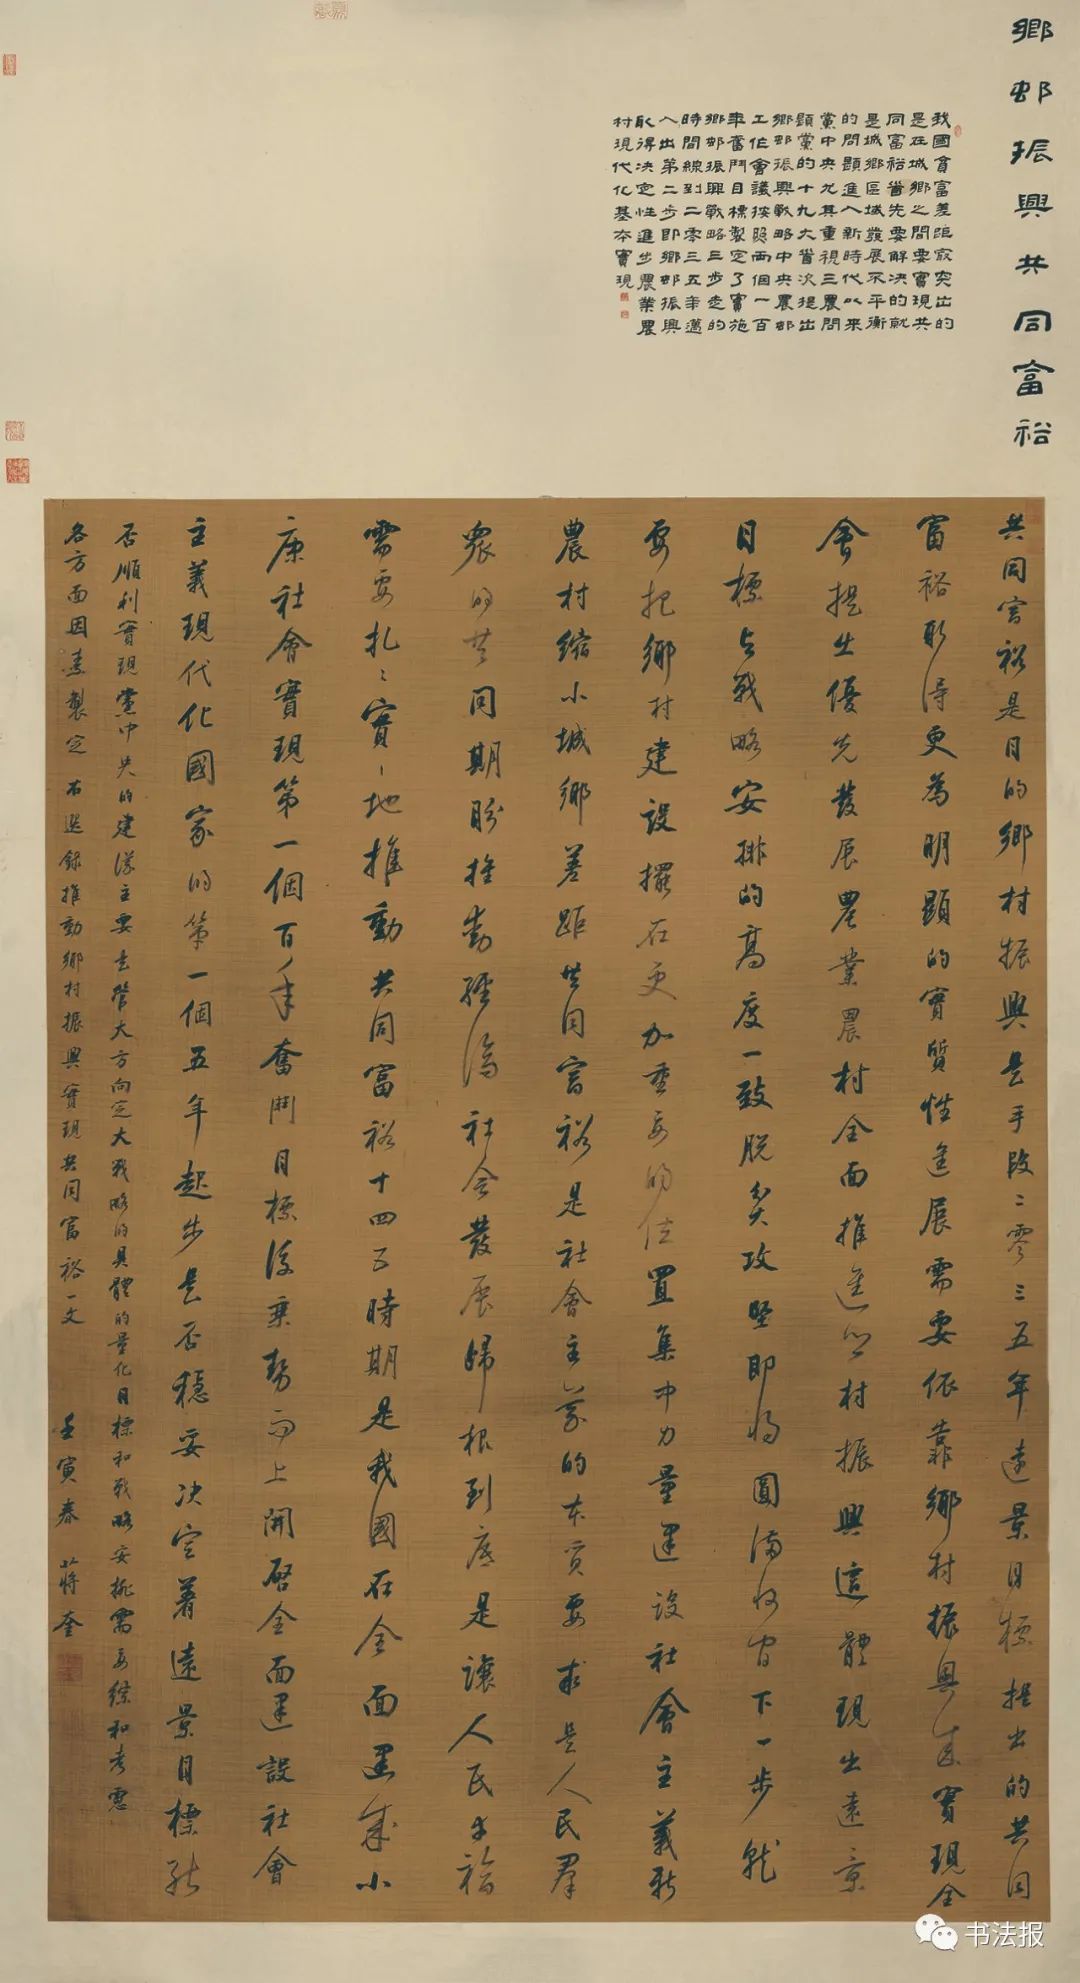 鄉邨振興共同富裕
我國貧富差距最突出的
是在城鄉之間要實現共
同富裕首先要解决的就
是城鄉區域發展不平衡
的問題進入新時代以來
黨中央尤其重視三農問
題黨的十九大首次提出
鄉邨振興戰略中央農邨
工作會議按照兩個一百
年奮鬥目標製定了實施
鄉邨振興戰略三步走的
時間線到二零三五年邁
入出第二步即鄉邨振興
取得决定性進步農業農
村現代化基本實現
共同富裕是目的鄉村振興是手段二零三五年遠景目標提出的共同
富裕取得更為明顯的實質性進展需要依靠鄉村振興來實現全
會提出優先發展農業農村全面推進鄉村振興這體現出遠景
目標與戰略安排的高度一致脱貧攻堅即將圓滿收官下一步就
要把鄉村建設擺在更加重要的位置集中力量建設社會主義新
農村縮小城鄉差距共同富裕是社會主義的本質要求是人民羣
眾的共同期盼推動經濟社會發展歸根到底是讓人民幸福
需要扎扎實實地推動共同富裕十四五時期是我國在全面建成小
康社會實現第一個百年奮鬥目標後乘勢而上開啓全面建設社會
主義現代化國家的第一個五年起步是否穩妥决定着遠景目標能
否順利實現黨中央的建議主要是管大方向定大戰略的具體的量化目標和戰略安排需要綜和考慮
各方面因素製定 右選錄推動鄉村振興實現共同富裕一文 壬寅春 蔣奎
书法报